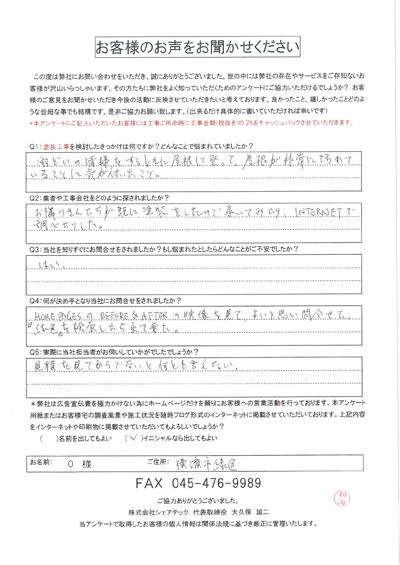 お客様のお声をお聞かせください
この度は弊社にお問い合わせをいただき、誠にありがとうございました。世の中には弊社の存在やサービスをご存知ないお
客様が沢山いらっしゃいます。その方たちに弊社をよく知っていただくためのアンケートにご協力いただけるでしょうか？ お客
様のご意見をお聞かせいただき今後の活動に反映させていただきたいと考えております。良かったこと、嬉しかったことどのよう
な些細な事でも結構です。是非ご協力お願い致します。（出来るだけ具体的に書いていただければ幸いです）
*本アンケートにご記入いただいたお客様には工事ご用命時に工事金額(税抜き)の 2%をキャッシュバックさせていただきます。
Q1:塗装工事を検討したきっかけは何ですか？どんなことで悩まれていましたか？
雨どいの清掃をするときに屋根に登って、屋根が非常に汚れて
いることに気が付いたこと。
Q2:業者や工事会社をどのように探されましたか？
お隣りさんたちが既に塗装をしたので聞いてみたり、INTERNETで
調べたりした。
Q3:当社を知りすぐにお問合せをされましたか？もし悩まれたとしたらどんなことがご不安でしたか？
はい。
Q4:何が決め手となり当社にお問合せをされましたか？
HOME PAGESの BEFORE & AFTERの映像を見て、よいと思い問合せた。
『緑色』を検索したら出て来た。
Q5:実際に当社担当者がお伺いしていかがでしたでしょうか？
見積を見てからでないと何とも言えない。
＊弊社は広告宣伝費を極力かけない為にホームページだけを頼りにお客様への営業活動を行っております。本アンケート
用紙またはお客様宅の調査風景や施工状況を随時ブログ形式のインターネットに掲載させていただいております。上記内容
をインターネットや印刷物に掲載させていただいてもよろしいでしょうか？
（ ）名前を出してもよい （✓）イニシャルなら出してもよい
お名前： O 様 ご住所： 横浜市緑区
FAX 045-476-9989
ご協力ありがとうございました。
株式会社シェアテック 代表取締役 大久保 誠二
当アンケートで取得したお客様の個人情報は関係法規に基づき厳正に管理いたします。